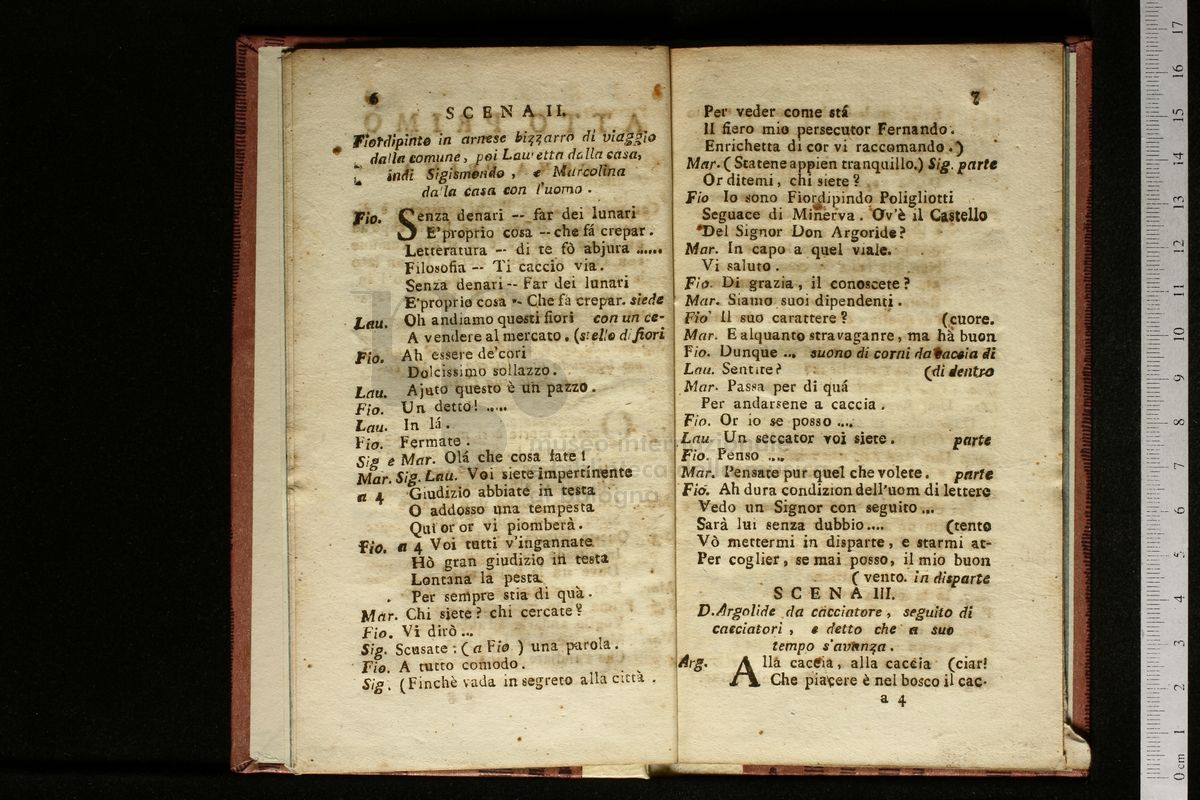 6
SCENA II.
Fiordipinto in arnese bizzarro di viaggio
dalla comune, poi Lauretta dalla casa,
indi Sigismondo, e Marcolina
dalla casa con l'uomo.
Fio. Senza denari -- far dei lunari
E'proprio cosa -- che fá crepar.
Letteratura -- di te fò abjura ......
Filosofia -- Ti caccio via.
Senza denari -- Far dei lunari
E'proprio cosa -- Che fa crepar. siede
Lau. Oh andiamo questi fiori con un ce-
A vendere al mercato. (stello di fiori
Fio. Ah essere de'cori
Dolcissimo sollazzo.
Lau. Ajuto questo è un pazzo.
Fio. Un detto! .....
Lau. In lá.
Fio. Fermate.
Sig e Mar. Olá che cosa fate!
Mar. Sig. Lau. Voi siete impertinente
a 4 Giudizio abbiate in testa
O addosso una tempesta
Qui or or vi piomberà.
Fio. a 4 Voi tutti v'ingannate
Hò gran giudizio in testa
Lontana la pesta
Per sempre stia di quà.
Mar. Chi siete? chi cercate?
Fio. Vi dirò ...
Sig. Scusate: (a Fio) una parola.
Fio. A tutto comodo.
Sig. (Finchè vada in segreto alla città.
7
Per veder come stá
Il fiero mio persecutor Fernando.
Enrichetta di cor vi raccomando.)
Mar. (Statene appien tranquillo.) Sig. parte
Or ditemi, chi siete?
Fio Io sono Fiordipindo Poligliotti
Seguace di Minerva. Ov'è il Castello
Del Signor Don Argoride?
Mar. In capo a quel viale.
Vi saluto.
Fio. Di grazia, il conoscete?
Mar. Siamo suoi dipendenti.
Fio Il suo carattere? (cuore.
Mar. E alquanto stravaganre, ma hà buon
Fio. Dunque ... suono di corni da caccia di
Lau. Sentite? (di dentro
Mar. Passa per di quá
Per andarsene a caccia.
Fio. Or io se posso ....
Lau. Un seccator voi siete. parte
Fio. Penso ....
Mar. Pensate pur quel che volete. parte
Fio. Ah dura condizion dell'uom di lettere
Vedo un Signor con seguito ...
Sarà lui senza dubbio .... (tento
Vò mettermi in disparte, e starmi at-
Per coglier, se mai posso, il mio buon
(vento. in disparte
SCENA III.
D. Argolide da cacciatore, seguito di
cacciatori, e detto che a suo
tempo s'avanza.
Arg. Alla caccia, alla caccia (ciar!
Che piacere è nel bosco il cac-
a 4
museo internazionale
di bologna
0 cm 1 2 3 4 5 6 7 8 9 10 11 12 13 14 15 16 17